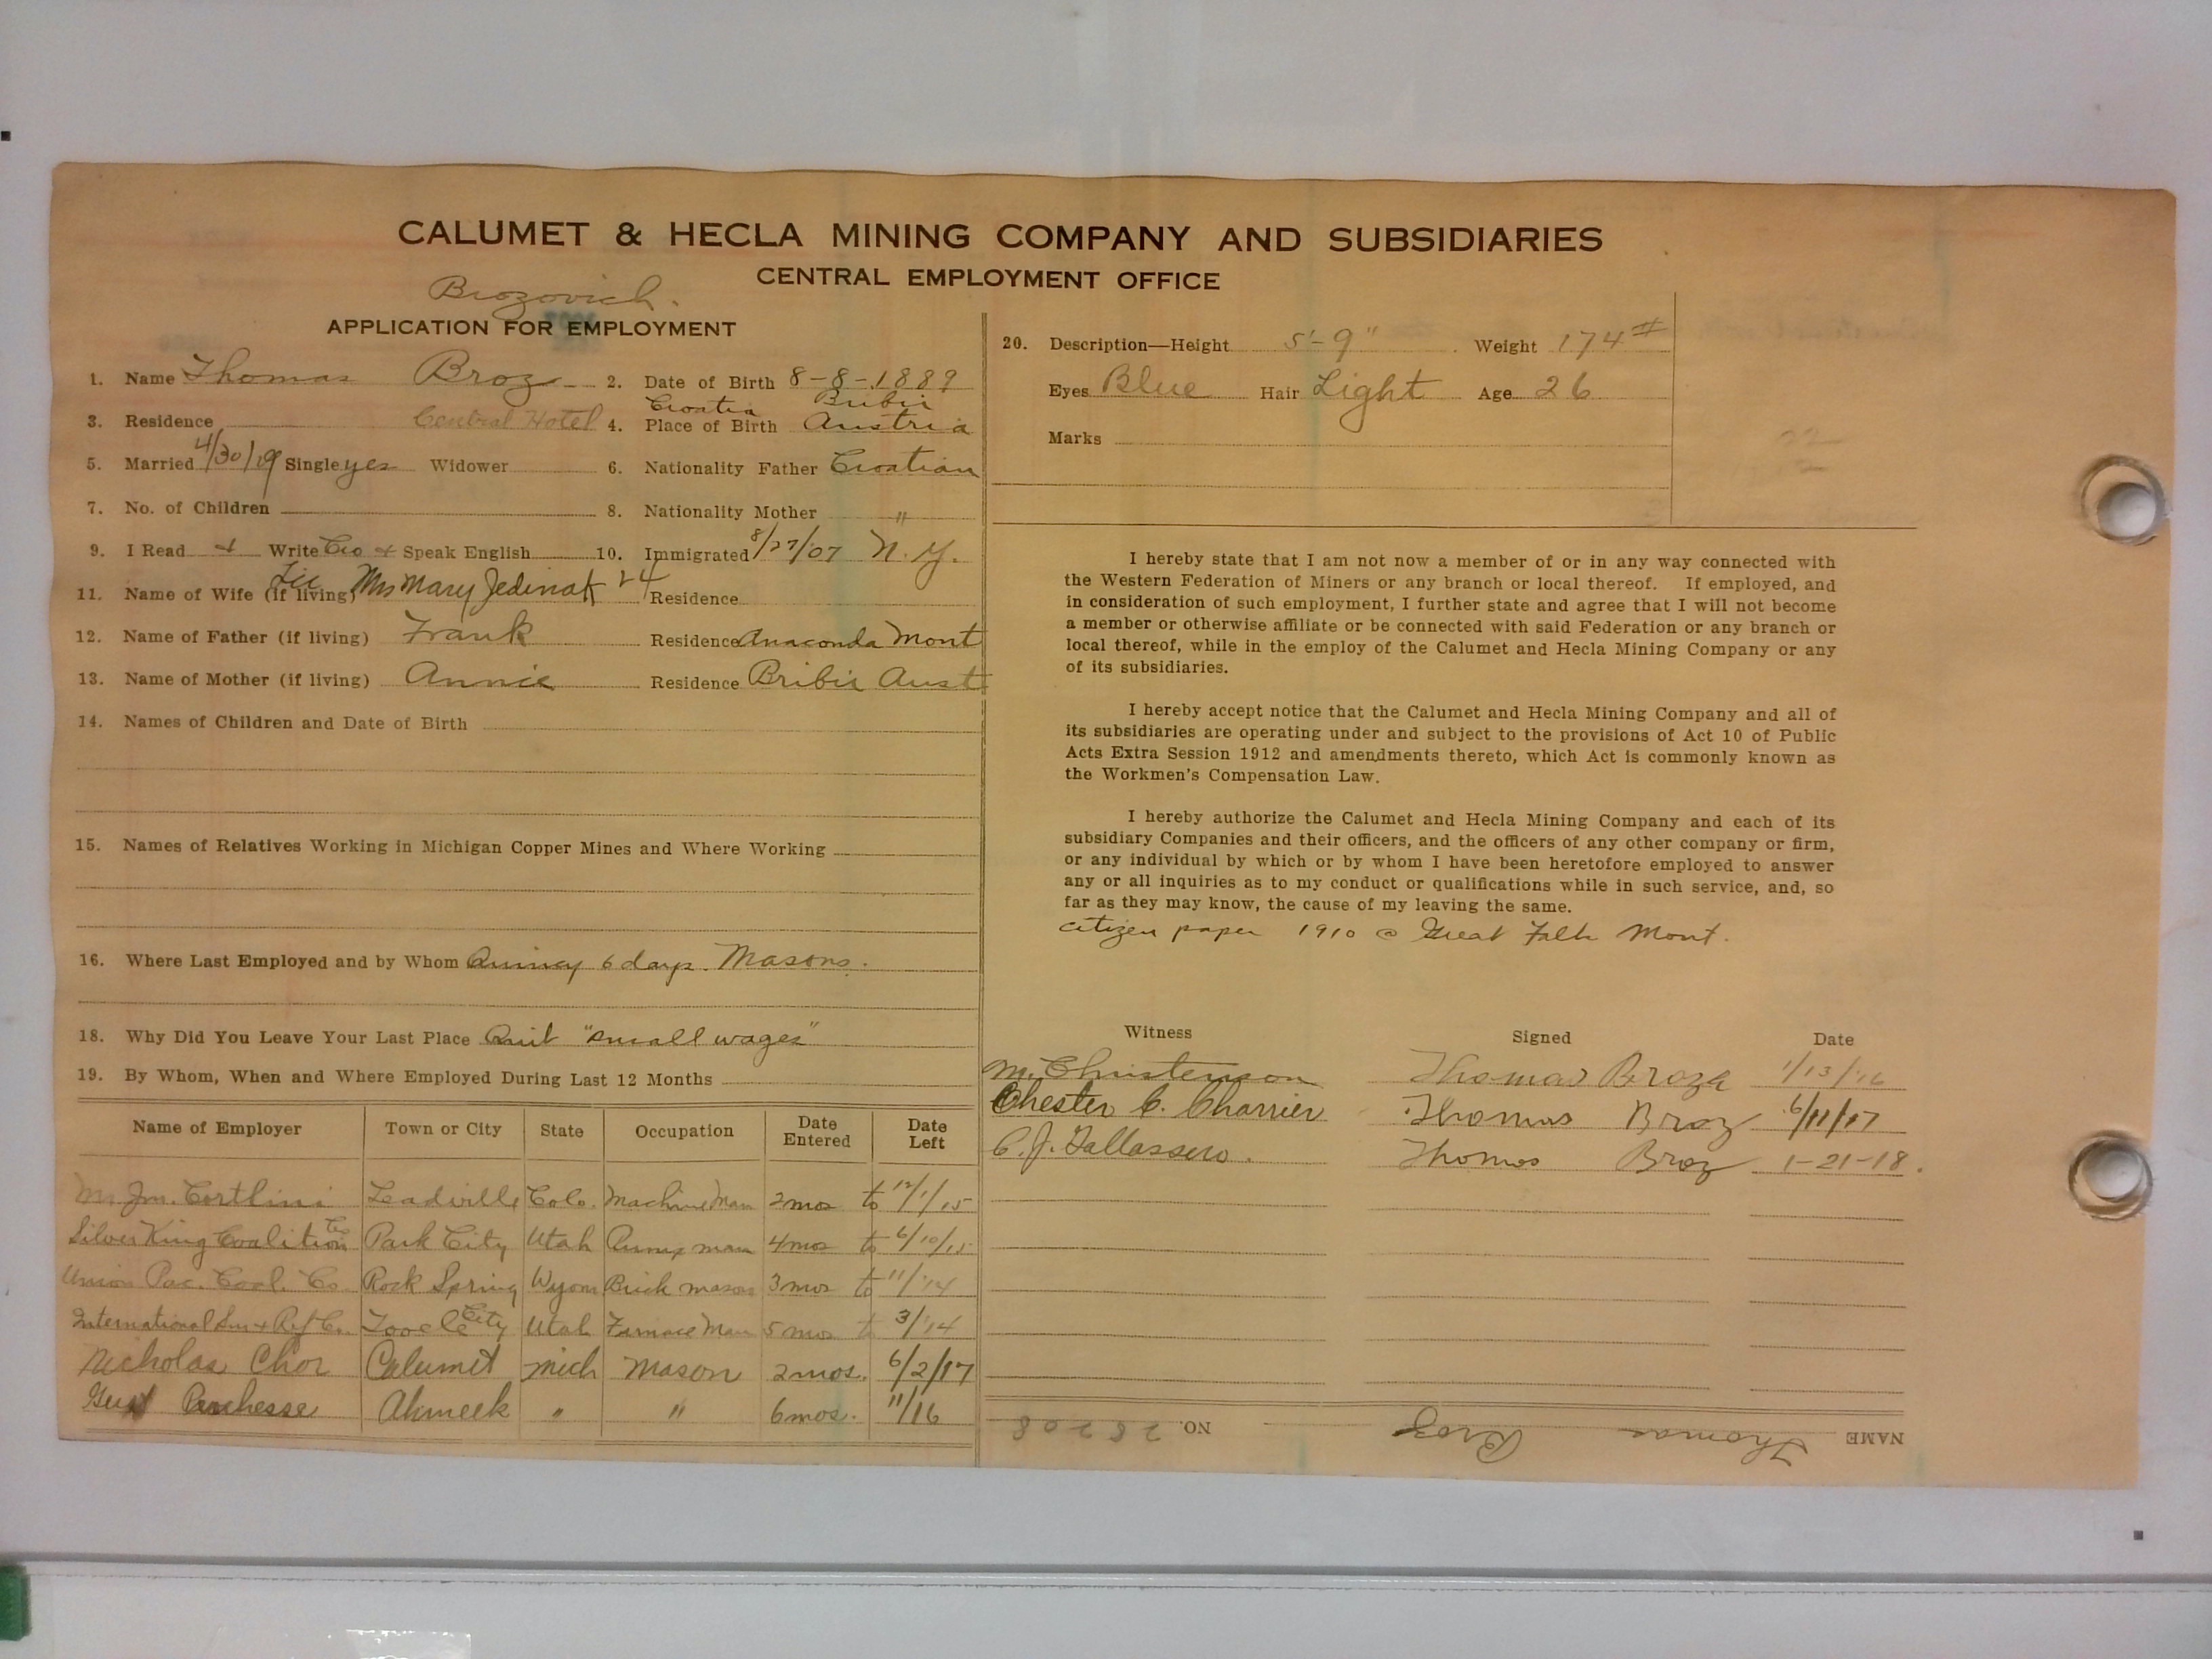 CALUMET & HECLA MINING COMPANY AND SUBSIDIARIES
CENTRAL EMPLOYMENT OFFICE
Brozovich.
APPLICATION FOR EMPLOYMENT
1. Name Thomas Broz 2. Date of Birth 8-8-1889
Croatia Bribir
3. Residence Central Hotel 4. Place of Birth Austria
5. Married 4/30/19 Single yes Widower 6. Nationality Father Croatian
7. No. of Children 8. Nationality Mother "
9. I Read + Write Cro + Speak English 10. Immigrated 8/27/07 N.Y.
11. Name of Wife (if living) Mrs Mary Jedinak 24 Residence
12. Name of Father (if living) Frank Residence Anaconda Mont
13. Name of Mother (if living) Annie Residence Bribir Aust
14. Names of Children and Date of Birth
15. Names of Relatives Working in Michigan Copper Mines and Where Working
16. Where Last Employed and by Whom Quincy 6 days. Masons.
18. Why Did You Leave Your Last Place Quit "small wages"
19. By Whom, When and Where Employed During Last 12 Months
Name of Employer Town or City State Occupation Date Entered Date Left
Leadville Colo. Machine Man 2 mos to 12/1/15
Silver King Coalition Co Park City Utah man 4 mos to 6/10/15
Union Pac. Coal. Co. Rock Spring Wyom Brick mason 3 mos to 11/'14
International Sm + Ref Co. Tooele City Utah Furnace Man 5 mos to 3/'14
Nicholas Chor Calumet Mich Mason 2 mos. 6/2/17
Gust Ahmeek " " 6 mos. 11/16
20. Description—Height 5'-9" Weight 174#
Eyes Blue Hair Light Age 26
Marks
I hereby state that I am not now a member of or in any way connected with
the Western Federation of Miners or any branch or local thereof. If employed, and
in consideration of such employment, I further state and agree that I will not become
a member or otherwise affiliate or be connected with said Federation or any branch or
local thereof, while in the employ of the Calumet and Hecla Mining Company or any
of its subsidiaries.
I hereby accept notice that the Calumet and Hecla Mining Company and all of
its subsidiaries are operating under and subject to the provisions of Act 10 of Public
Acts Extra Session 1912 and amendments thereto, which Act is commonly known as
the Workmen's Compensation Law.
I hereby authorize the Calumet and Hecla Mining Company and each of its
subsidiary Companies and their officers, and the officers of any other company or firm,
or any individual by which or by whom I have been heretofore employed to answer
any or all inquiries as to my conduct or qualifications while in such service, and, so
far as they may know, the cause of my leaving the same.
citizen paper 1910 @ Great Falls Mont.
Witness Signed Date
M. Christenson Thomas Broza 1/13/16
Chester C. Charrier Thomas Broz 6/11/17
C. J. Thomas Broz 1-21-18.
NAME Thomas Broz NO. 28208